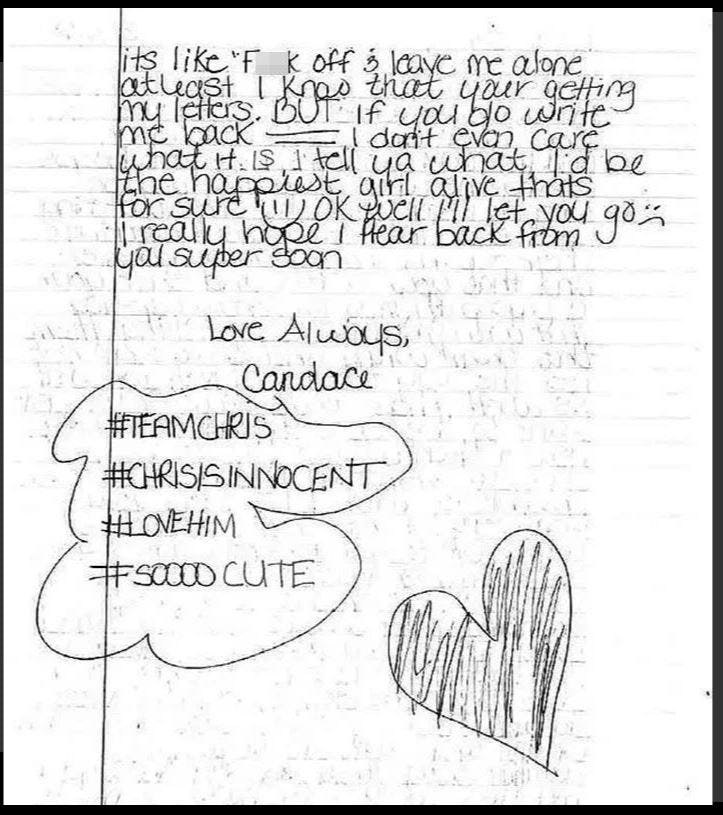 its like "F  k off & leave me alone
atleast I know that your getting
my letters. BUT if you do write
me back I don't even care
what it is I tell ya what, I'd be
the happiest girl alive thats
for sure!!!! OK well I'll let you go :(
I really hope I Hear back from
you super soon
Love Always,
Candace
#TEAMCHRIS
#CHRISISINNOCENT
#LOVEHIM
#SOOOOCUTE